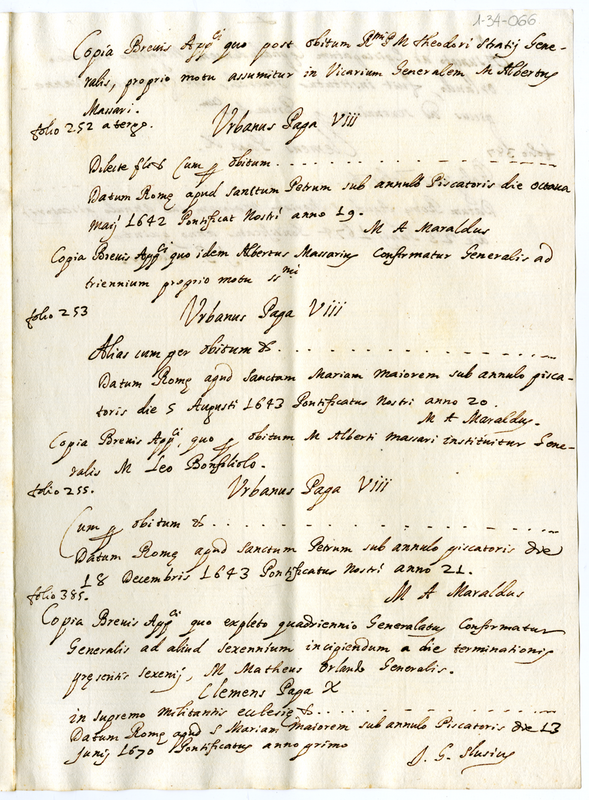 1-34-066
Copia Brevis App.ci quo post obitum R.mi P. M Theodori Stratij Gene-
ralis, proprio motu assumitur in Vicarium Generalem M Albertus
Massari.
folio 252 a tergo.
Vrbanus Papa VIII
Dilecte fili &c. Cum per obitum . . . . . . . . . . . . . .
Datum Romę apud sanctum Petrum sub annulo Piscatoris die octaua
Maij 1642 Pontificat Nostri anno 19.
M A Maraldus
Copia Brevis App.ci quo idem Albertus Massarius Confirmatur Generalis ad
triennium proprio motu ss.mi
folio 253
Vrbanus Papa VIII
Alias cum per obitum &c. . . . . . . . . . . . . . .
Datum Romę apud sanctam Mariam maiorem sub annulo pisca-
toris die 5 Augusti 1643 Pontificatus Nostri anno 20.
M A Maraldus.
Copia Brevis App.ci, quo per obitum M Alberti Massari instituitur Gene-
ralis M Leo Bonfoliolo.
folio 255.
Vrbanus Papa VIII
Cum per obitum &c. . . . . . . . . . . . . . .
Datum Romę apud sanctum Petrum sub annulo piscatoris die
18 Decembris 1643 Pontificatus Nostri anno 21.
M A Maraldus
folio 385.
Copia Brevis App.ci quo expleto quadriennio Generalatus Confirmatur
Generalis ad aliud sexennium incipiendum a die terminationis
pręsentis sexenij, M Matheus Orlando Generalis.
Clemens Papa X
in supremo militantis ecclesię &c. . . . . . . . . . . .
Datum Romę apud S Mariam Maiorem sub annulo Piscatoris die 13
Junij 1670 Pontificatus anno primo
J. G. Slusius